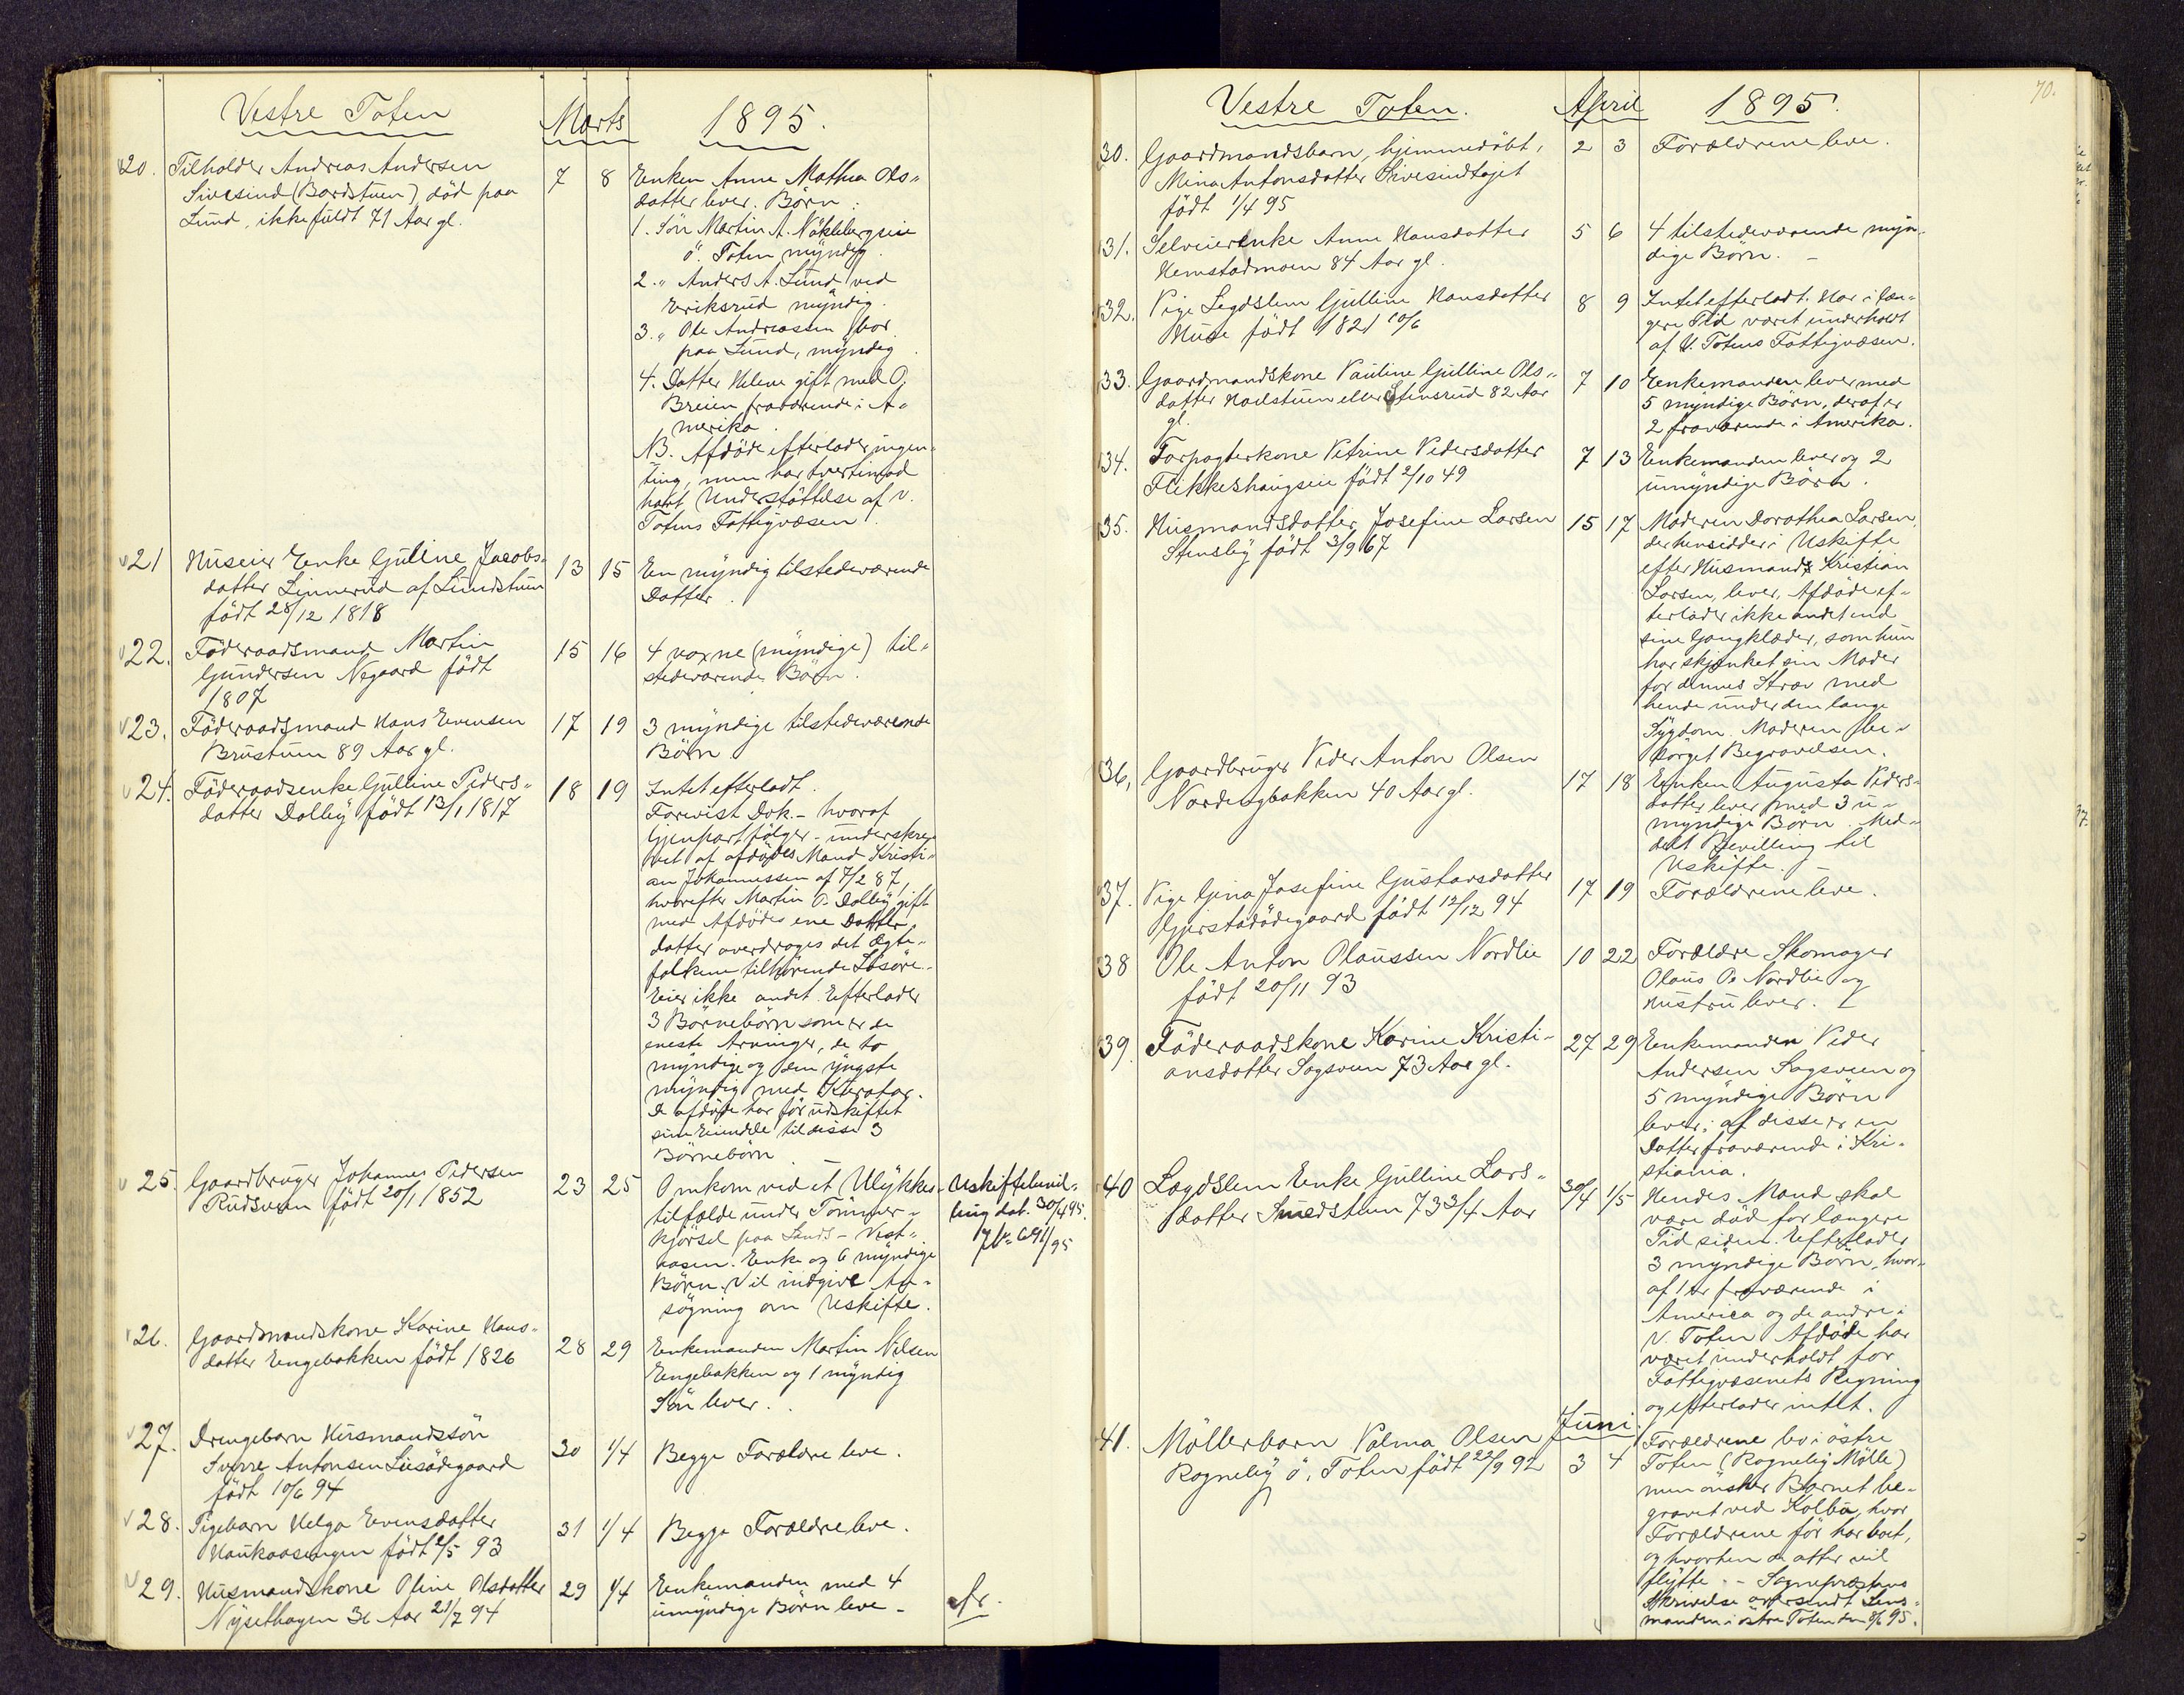 Vestre Toten
Marts
1895.
20. Tilholder Andreas Andersen
Sivesind (Bardstuen), död paa
Lund, ikke fuldt 71 Aar gl.
7 8
Enken Anne Mathea Ols-
datter lever. Börn:
1. Sön Martin A. Nökleby
ö. Toten myndig.
2. " Anders A. Lund ved
Eriksrud myndig.
3. " Ole Andreassen bor
paa Lund, myndig.
4. Datter Helene gift med O.
Breien fraværende i A-
merika.
NB. Afdöde efterlader ingen-
ting, men har tvertimod
havt Understöttelse af V.
Totens Fattigvæsen.
21 Huseier Enke Guline Jacobs-
datter Linnerud af Lundstuen
födt 28/12 1818
13 15
En myndig tilstedeværende
Datter.
22. Föderaadsmand Martin
Gundersen Nøgaard födt
1807
15 16
4 voxne (myndige) til-
stedeværende Börn.
23. Föderaadsmand Hans Evensen
Brustuen 89 Aar gl.
17 19
3 myndige tilstedeværende
Börn
24. Föderaadsenke Gulline Peders-
datter Dalby födt 13/1 1817
18 19
Intet efterladt.
Forevist Dok. - hvoraf
Gjenpart fölger - underskre-
vet af afdödes Mand Kristi-
an Johannessen af 7/2 87,
hvorefter Martin P. Dalby gift
med Afdödes ene Datter-
datter overdrages det Ægte-
folkene tilhörende Lösöre.
Eier ikke andet. Efterlader
3 Börnebörn som er de
eneste Arvinger, de to
myndige og den yngste
myndig med Kurator.
De afdöde har för udskiftet
sine Eiendele til disse 3
Börnebörn
25. Gaardbruger Johannes Pedersen
Rudsveen födt 20/1 1852
23 25
Omkom ved et Ulykkes-
tilfælde under Tömmer-
kjörsel paa Lands- Vest-
aasen. Enke og 6 myndige
Börn. Vil indgive An-
sögning om Uskifte.
Uskiftebevil-
ling dat. 30/4 95.
Jk. 691/95
26. Gaardmandskone Karine Hans-
datter Engebakken födt 1826
28 29
Enkemanden Martin Nilsen
Engebakken og 1 myndig
Sön lever.
27. Drengebarn Husmandssön
Sverre Antonsen Liesödegaard
födt 10/6 94
30 1/4
Begge Forældre leve.
28. Pigebarn Helga Evensdatter
Haukaasengen födt 2/5 93
31 1/4
Begge Forældre leve.
29. Husmandskone Oline Olsdatter
Nysethagen 36 Aar 21/7 94
29 1/4
Enkemanden med 4
umyndige Börn leve.
fr.
70.
Vestre Toten.
April
1895.
30. Gaardmandsbarn, hjemmedöbt,
Mina Antonsdatter Sivesindtajet
födt 1/4 95
2 3
Forældrene leve.
31. Selveierenke Anne Hansdatter
Hemstadmoen 84 Aar gl.
5 6
4 tilstedeværende myn-
dige Börn.
32. Pige Legdslem Gulline Hansdatter
Huse födt 1821 10/6
8 9
Intet efterladt. Har i læn-
gere Tid været underholdt
af V. Totens Fattigvæsen.
33. Gaardmandskone Pauline Gulline Ols-
datter Hoelstuen eller Stensrud 82 Aar
gl.
7 10
Enkemanden lever med
5 myndige Börn, deraf er
2 fraværende i Amerika.
34. Forpagterkone Petrine Pedersdatter
Flikkeshaugseie födt 2/10 49
7 13
Enkemanden lever og 2
umyndige Börn.
35. Husmandsdatter Josefine Larsen
Stensby födt 3/9 67
15 17
Moderen Dorothea Larsen,
der hensidder i Uskifte
efter Husmand Kristian
Larsen, lever. Afdöde ef-
terlader ikke andet end
sine Gangklæder, som hun
har skjænket sin Moder
for dennes Stræv med
hende under den lange
Sygdom. Moderen be-
sörget Begravelsen.
36. Gaardbruger Peder Anton Olsen
Nordengbakken 40 Aar gl.
17 18
Enken Augusta Peders-
datter lever med 3 u-
myndige Börn. Med-
delt Bevilling til
Uskifte.
37. Pige Gina Josefine Gustavsdatter
Gjerstadödegaard födt 12/12 94
17 19
Forældrene leve.
38 Ole Anton Olaussen Nordlie
födt 20/11 93
10 22
Forældre Skomager
Olaus O. Nordlie og
Hustru lever.
39. Föderaadskone Karine Kristi-
ansdatter Sagsveen 73 Aar gl.
27 29
Enkemanden Peder
Andersen Sagsveen og
5 myndige Börn
lever; af disse er en
Datter fraværende i Kri-
stiania.
40 Lægdslem Enke Gulline Lars-
datter Smedstuen 73 3/4 Aar
30/4 1/5
Hendes Mand skal
være död for længere
Tid siden. Efterlader
3 myndige Börn, hvor-
af 1 er fraværende i
America og de andre i
V. Toten. Afdöde har
været underholdt for
Fattigvæsenets Regning
og efterlader intet.
Juni.
41. Möllerbarn Valma Olsen
Rogneby ö. Toten födt 22/9 92
3 4
Forældrene bo i östre
Toten (Rogneby Mölle)
men önsker Barnet be-
gravet ved Kolbu, hvor
Forældrene för har boet,
og hvorhen de atter vil
flytte. - Sognepræstens
Skrivelse oversendt Lens-
manden i östre Toten den 8/6 95.